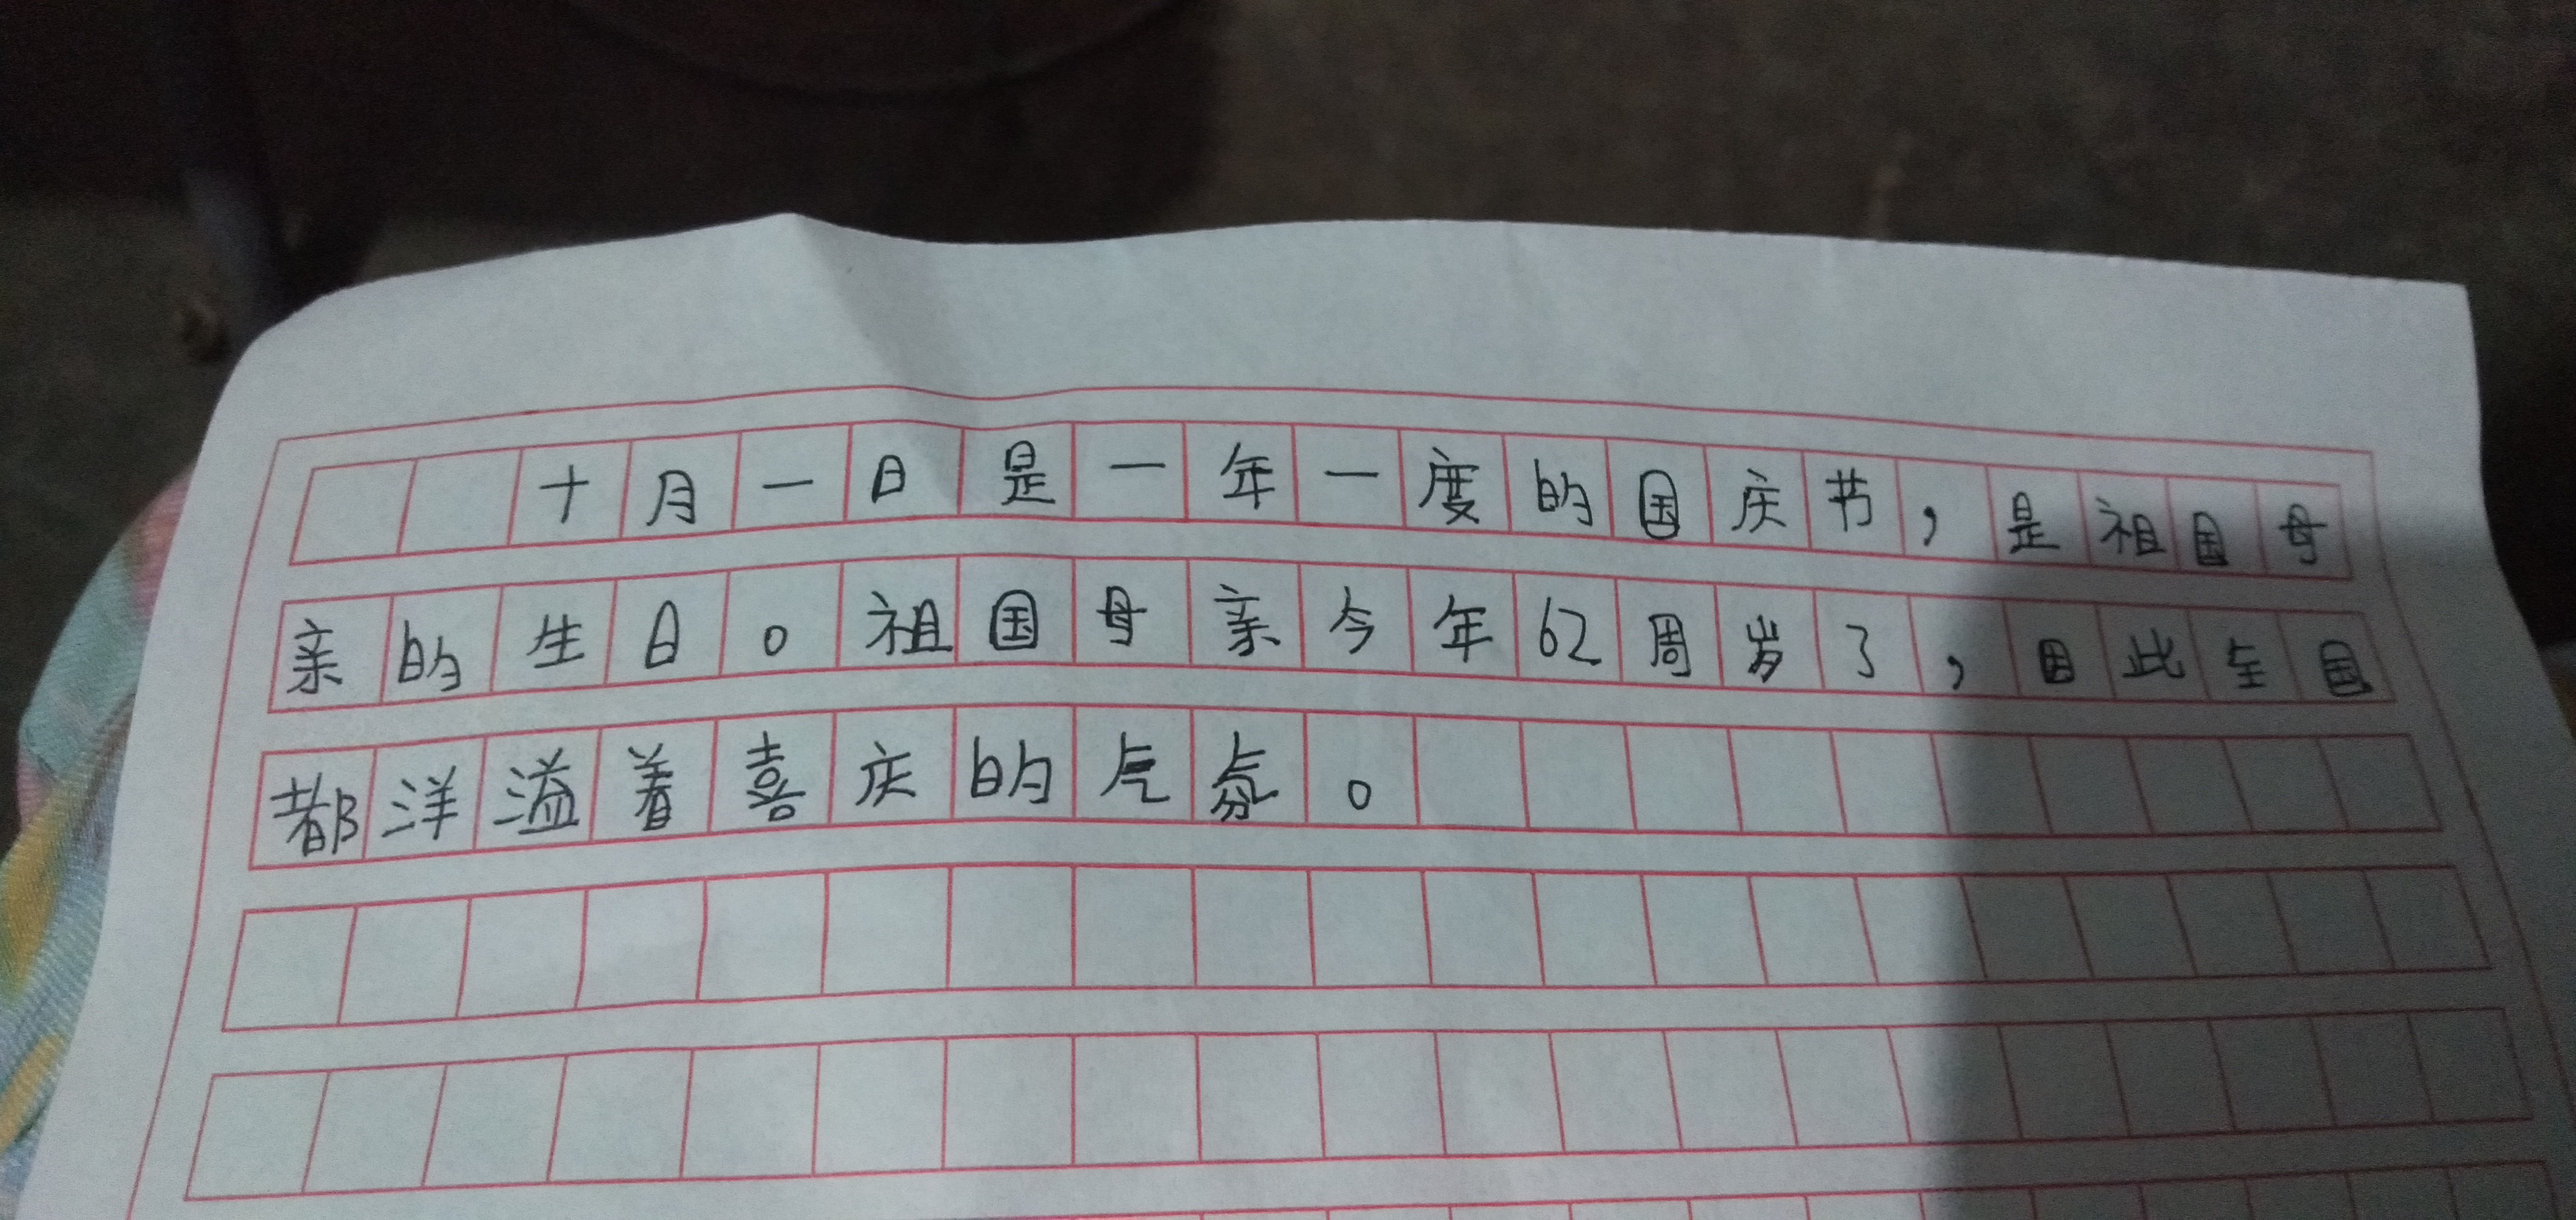 十月一日是一年一度的国庆节，是祖国母
亲的生日。祖国母亲今年62周岁了，因此全国
都洋溢着喜庆的气氛。